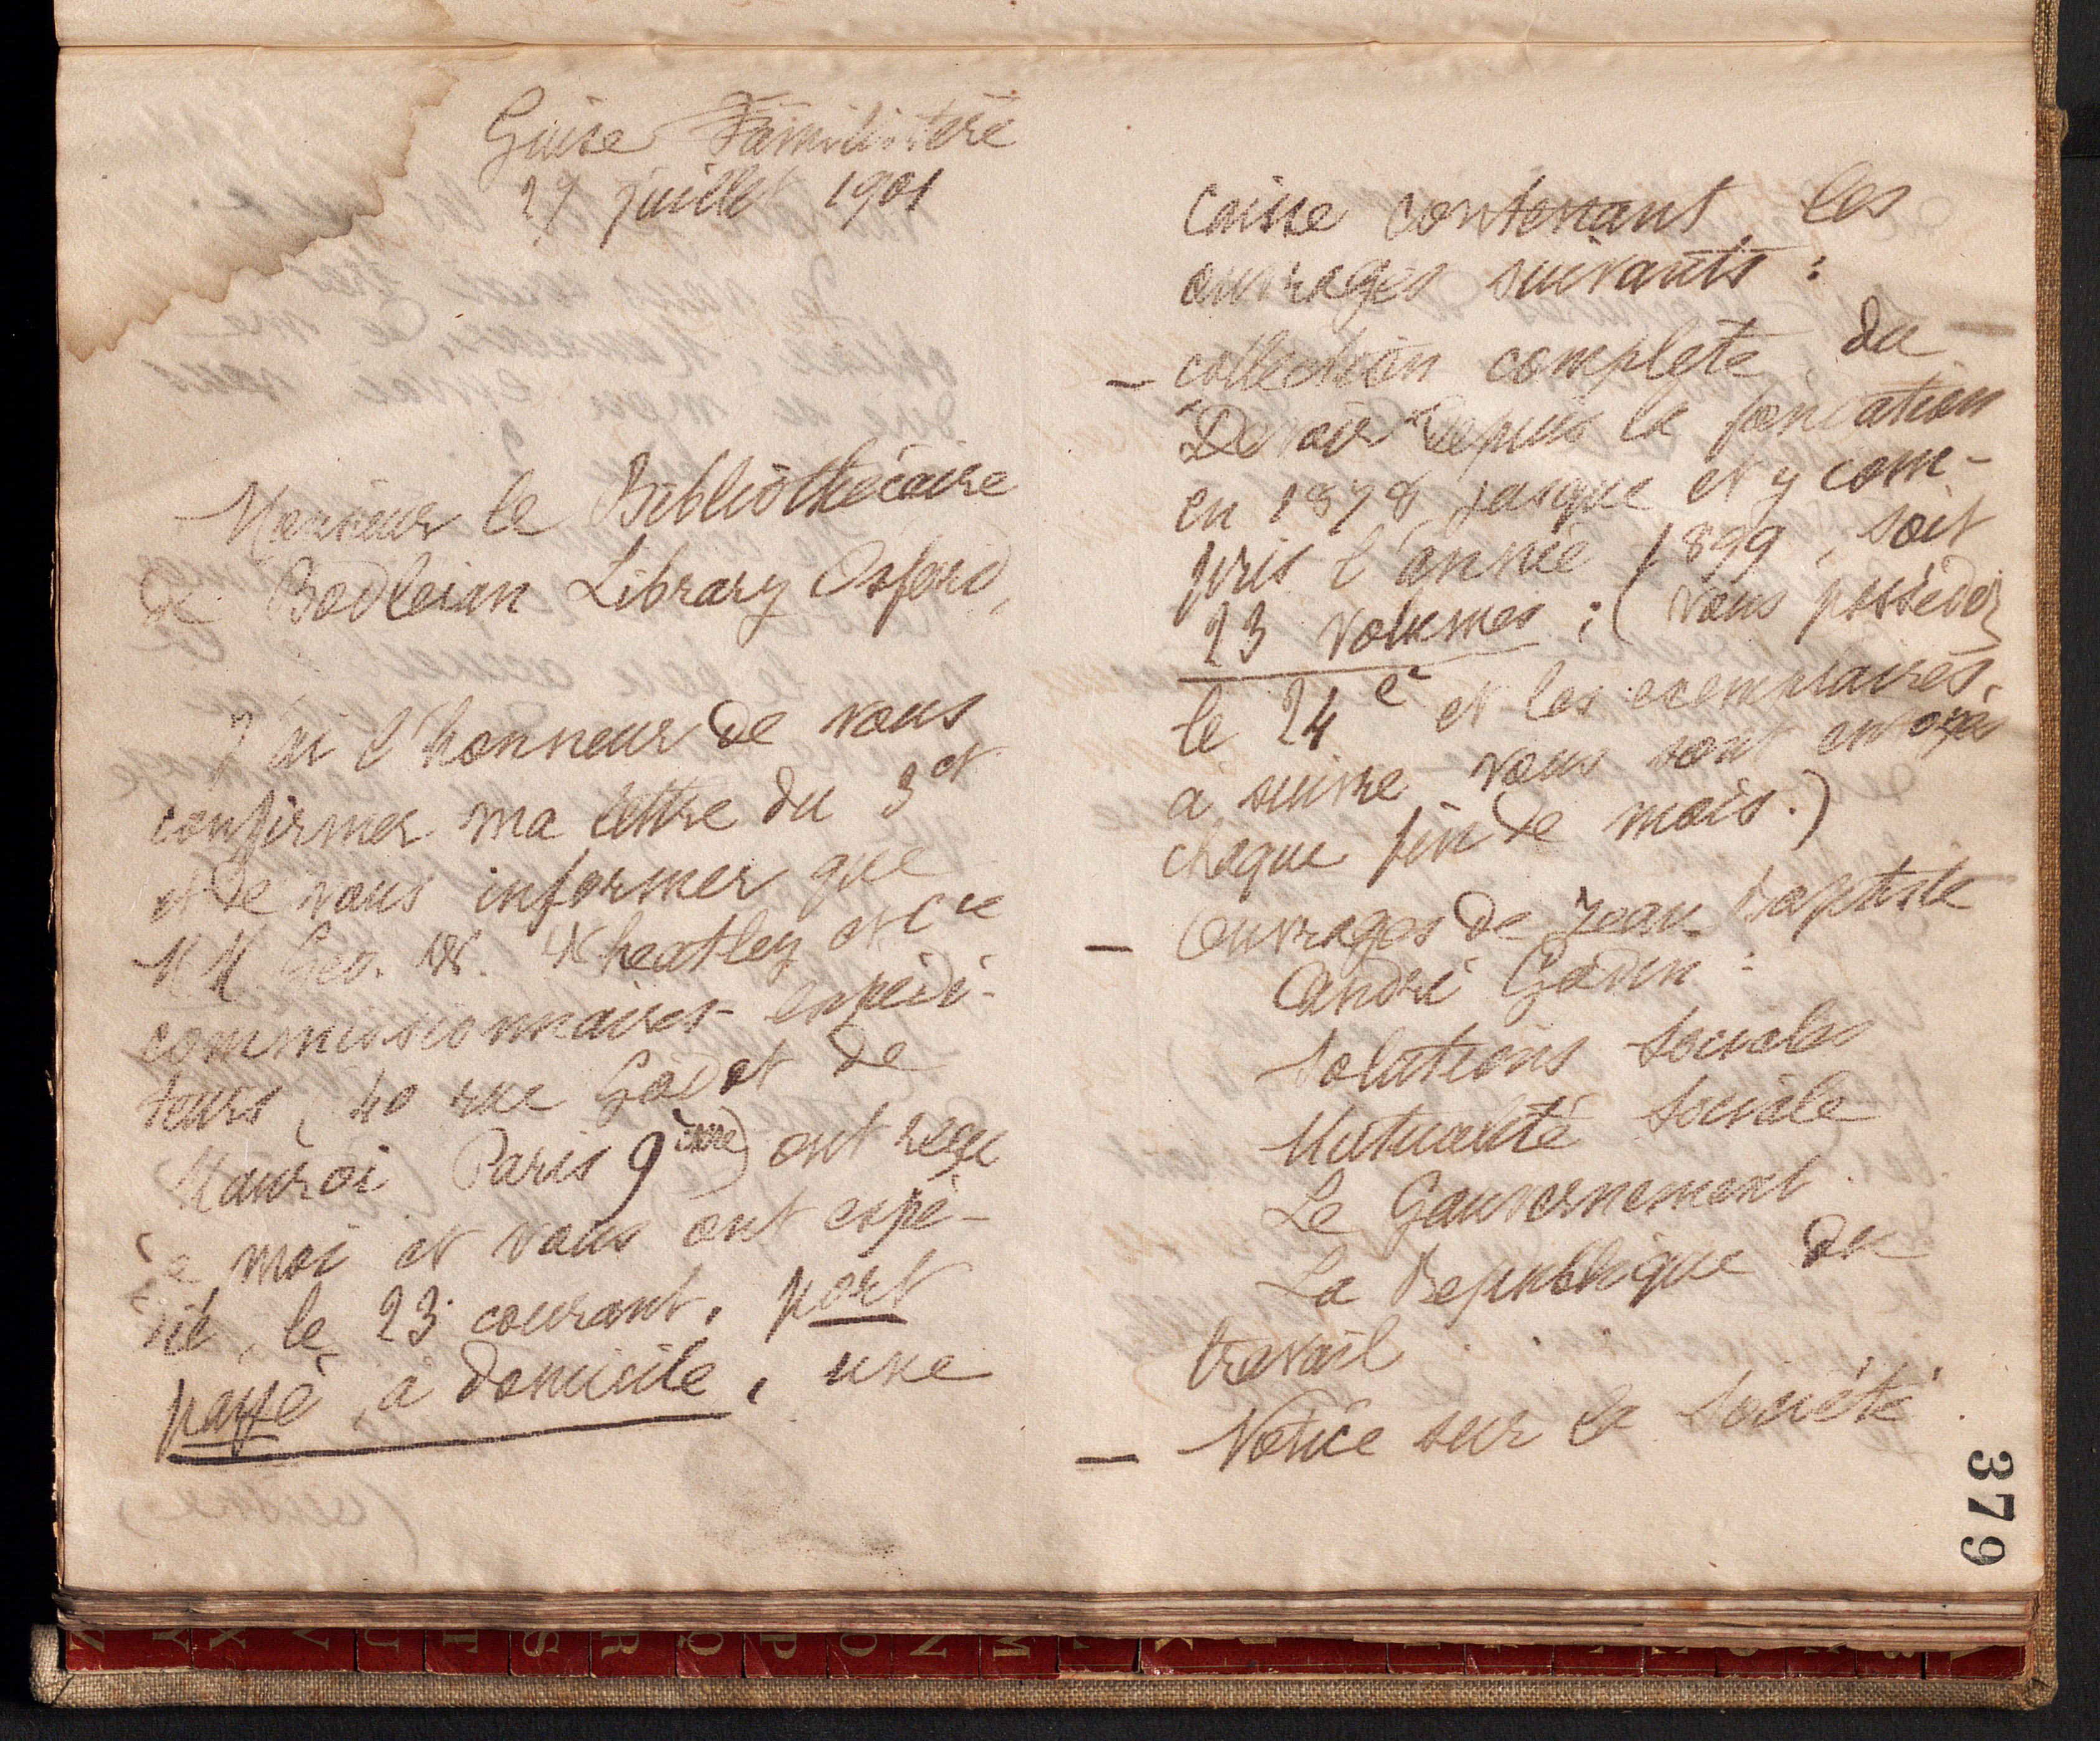 Guise Familistère
27 juillet 1901
Monsieur le Bibliothécaire
de Bodleian Library Oxford,
J'ai l'honneur de vous
confirmer ma lettre du 3 ct
et de vous informer que
MM Geo. W. Wheatley et Cie
commissionnaires-expédi-
teurs, 40 rue Godot de
Mauroi Paris 9ième) ont reçu
de moi et vous ont expé-
dié, le 23 courant, port
payé, à domicile, une
caisse contenant les
ouvrages suivants :
— collection complète du
"Devoir" depuis la fondation
en 1878 jusque et y com-
pris l'année 1899, soit
23 volumes ; (vous possédez
le 24e et les exemplaires
à suivre vous sont envoyés
chaque fin de mois.)
— Ouvrages de Jean-Baptiste
André Godin :
Solutions sociales
Mutualité sociale
Le Gouvernement.
La République du
travail.
— Notice sur la Société
379
(
Z Y X V U T S R Q P O N M L K